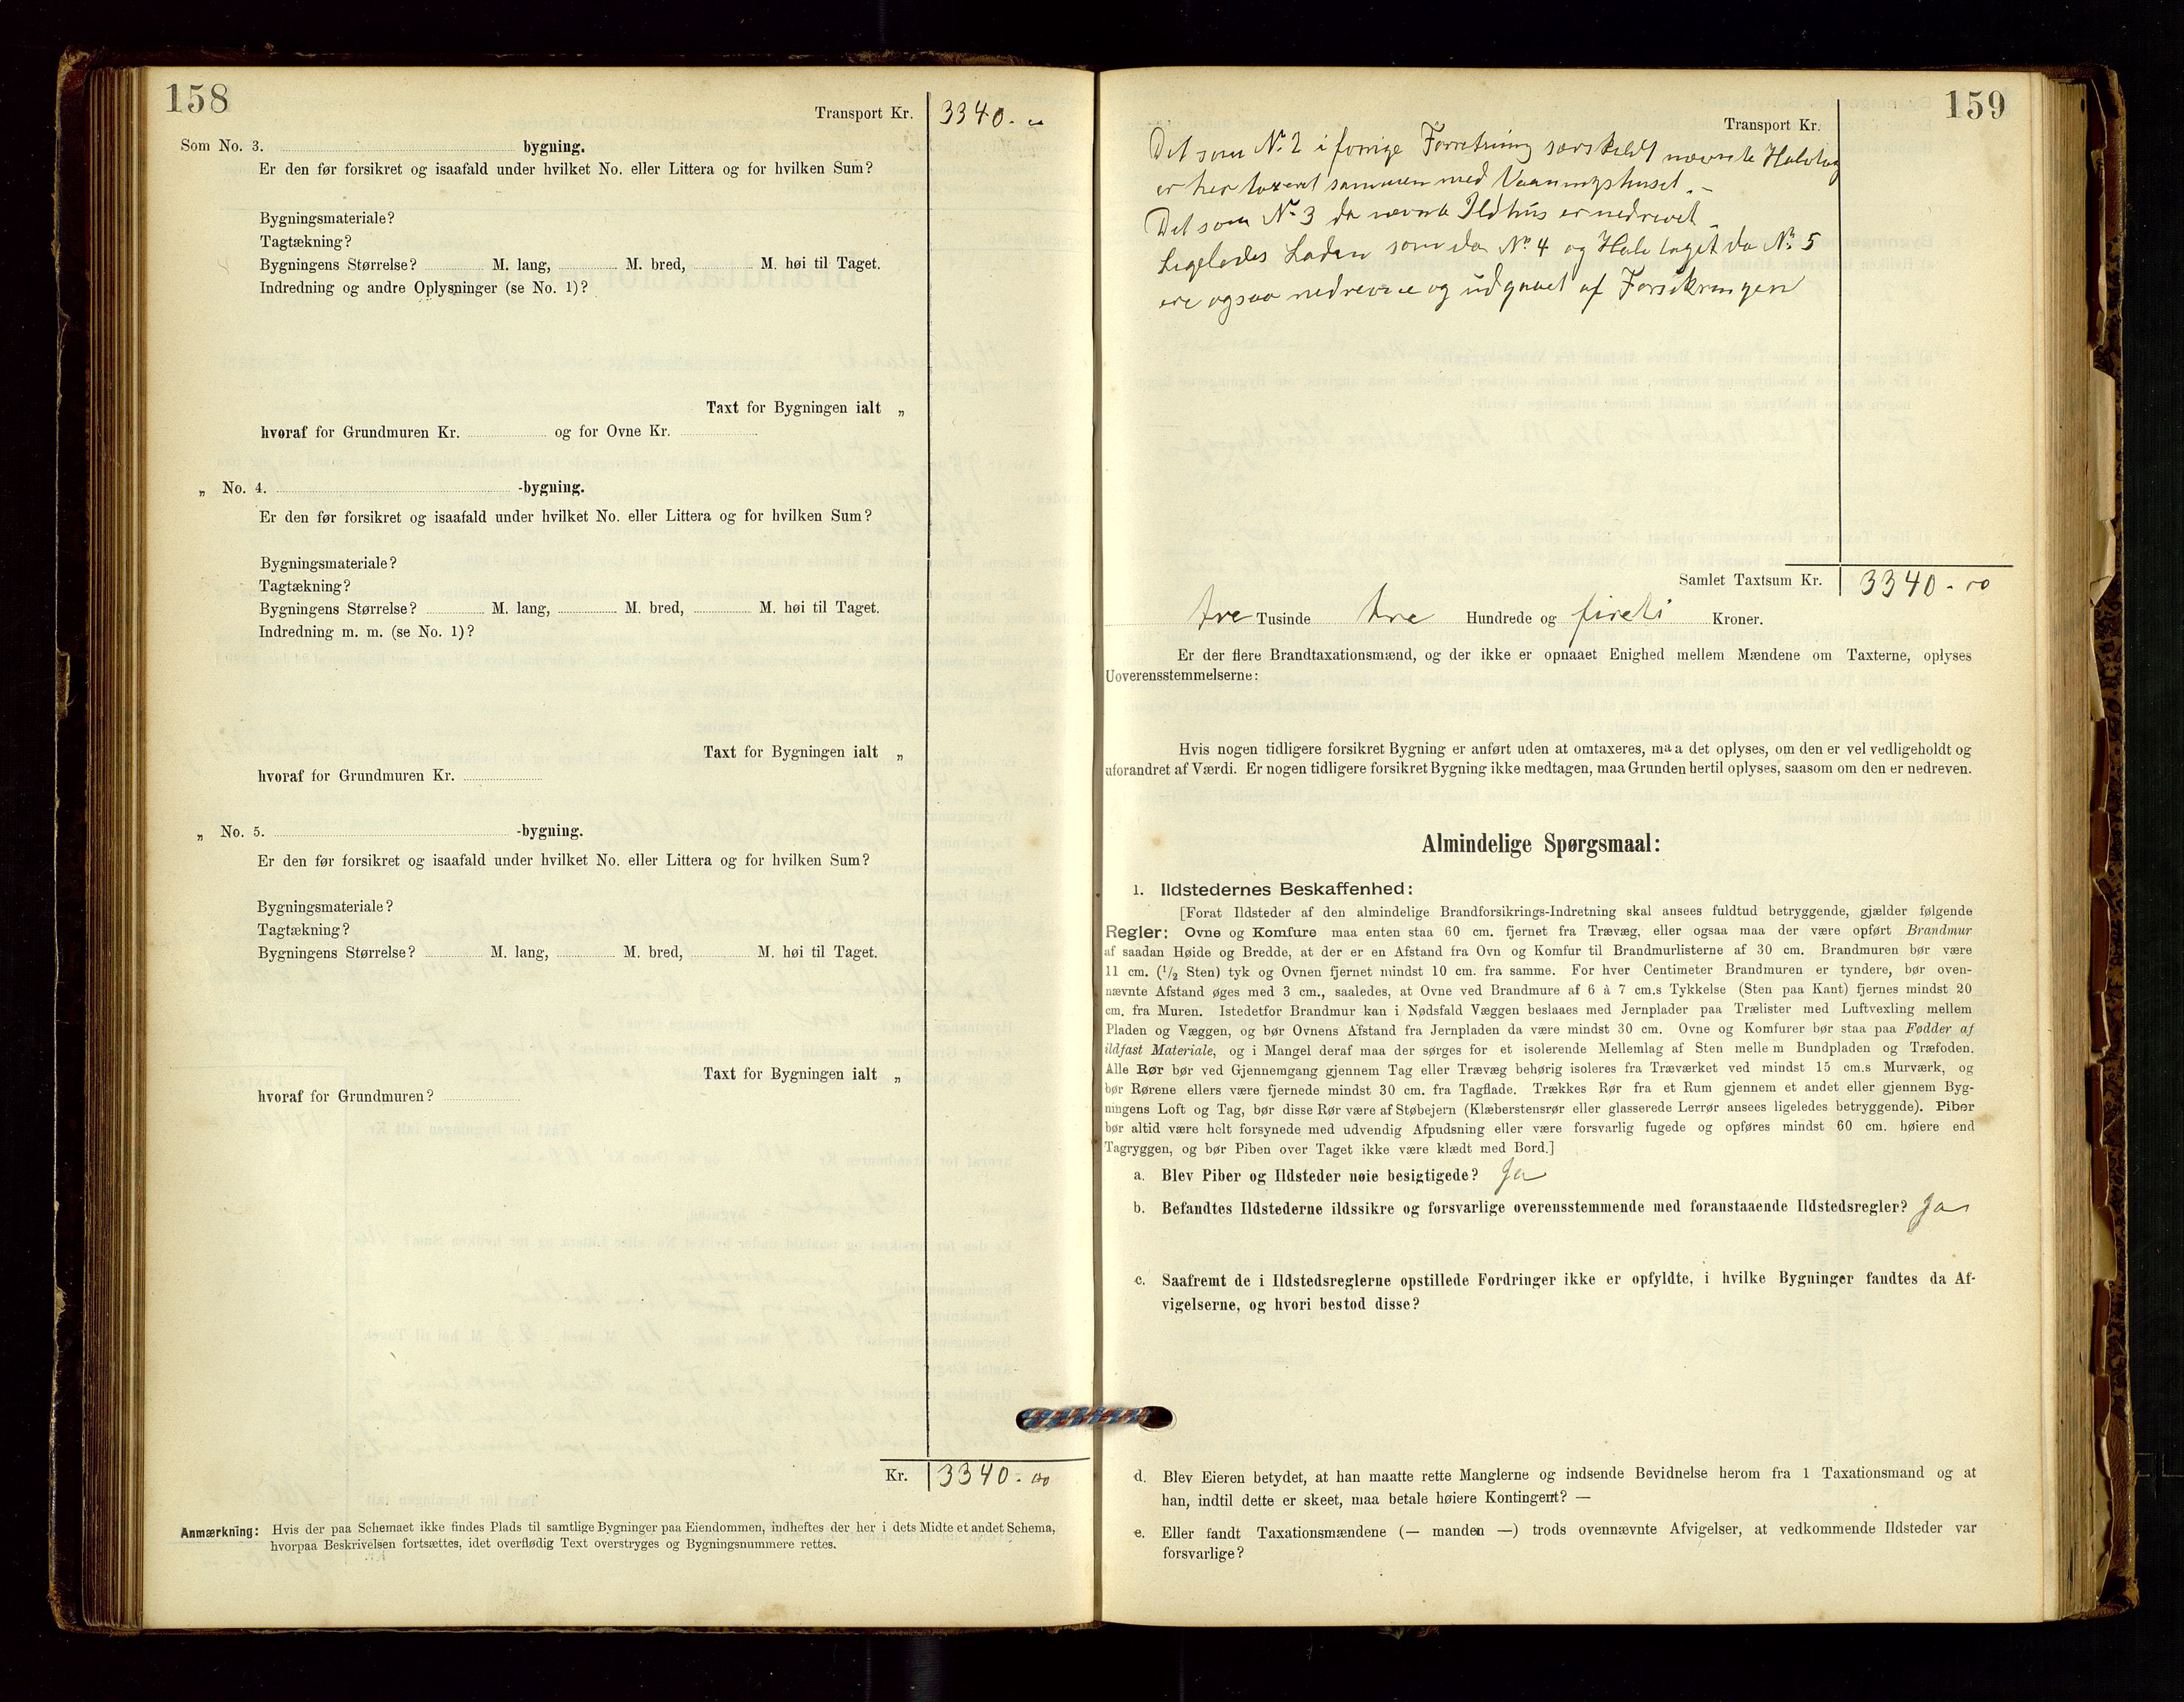 158
Transport Kr. 3340.00
Som No. 3. bygning.
Er den før forsikret og isaafald under hvilket No. eller Littera og for hvilken Sum?
Bygningsmateriale?
Tagtækning?
Bygningens Størrelse? M. lang, M. bred, M. høi til Taget.
Indredning og andre Oplysninger (se No. 1)?
Taxt for Bygningen ialt „
hvoraf for Grundmuren Kr. og for Ovne Kr.
„ No. 4. -bygning.
Er den før forsikret og isaafald under hvilket No. eller Littera og for hvilken Sum?
Bygningsmateriale?
Tagtækning?
Bygningens Størrelse? M. lang, M. bred, M. høi til Taget.
Indredning m. m. (se No. 1)?
Taxt for Bygningen ialt „
hvoraf for Grundmuren Kr.
„ No. 5. -bygning.
Er den før forsikret og isaafald under hvilket No. eller Littera og for hvilken Sum?
Bygningsmateriale?
Tagtækning?
Bygningens Størrelse? M. lang, M. bred, M. høi til Taget.
Taxt for Bygningen ialt „
hvoraf for Grundmuren?
Kr. 3340.00
Anmærkning: Hvis der paa Schemaet ikke findes Plads til samtlige Bygninger paa Eiendommen, indheftes der her i dets Midte et andet Schema,
hvorpaa Beskrivelsen fortsættes, idet overflødig Text overstryges og Bygningsnummere rettes.
159
Transport Kr.
Det som No. 2 i forrige Forretning særskildt nævnte Halvtag
er her taxeret sammen med Vaaningshuset. -
Det som No. 3 da nævnte Ildhus er nedrevet -
Ligeledes Laden som da No. 4 og Halvtaget da No. 5
ere ogsaa nedrevne og udgaaet af Forsikringen
Samlet Taxtsum Kr. 3340.00
tre Tusinde tre Hundrede og fireti Kroner.
Er der flere Brandtaxationsmænd, og der ikke er opnaaet Enighed mellem Mændene om Taxterne, oplyses
Uoverensstemmelserne:
Hvis nogen tidligere forsikret Bygning er anført uden at omtaxeres, maa det oplyses, om den er vel vedligeholdt og
uforandret af Værdi. Er nogen tidligere forsikret Bygning ikke medtagen, maa Grunden hertil oplyses, saasom om den er nedreven.
Almindelige Spørgsmaal:
1. Ildstedernes Beskaffenhed:
[Forat Ildsteder af den almindelige Brandforsikrings-Indretning skal ansees fuldtud betryggende, gjælder følgende
Regler: Ovne og Komfure maa enten staa 60 cm. fjernet fra Trævæg, eller ogsaa maa der være opført Brandmur
af saadan Høide og Bredde, at der er en Afstand fra Ovn og Komfur til Brandmurlisterne af 30 cm. Brandmuren bør være
11 cm. (1/2 Sten) tyk og Ovnen fjernet mindst 10 cm. fra samme. For hver Centimeter Brandmuren er tyndere, bør oven-
nævnte Afstand øges med 3 cm., saaledes, at Ovne ved Brandmure af 6 à 7 cm.s Tykkelse (Sten paa Kant) fjernes mindst 20
cm. fra Muren. Istedetfor Brandmur kan i Nødsfald Væggen beslaaes med Jernplader paa Trælister med Luftvexling mellem
Pladen og Væggen, og bør Ovnens Afstand fra Jernpladen da være mindst 30 cm. Ovne og Komfurer bør staa paa Fødder af
ildfast Materiale, og i Mangel deraf maa der sørges for et isolerende Mellemlag af Sten mellem Bundpladen og Træfoden.
Alle Rør bør ved Gjennemgang gjennem Tag eller Trævæg behørig isoleres fra Træværket ved mindst 15 cm.s Murværk, og
bør Rørene ellers være fjernede mindst 30 cm. fra Tagflade. Trækkes Rør fra et Rum gjennem et andet eller gjennem Byg-
ningens Loft og Tag, bør disse Rør være af Støbejern (Klæberstensrør eller glasserede Lerrør ansees ligeledes betryggende). Piber
bør altid være helt forsynede med udvendig Afpudsning eller være forsvarlig fugede og opføres mindst 60 cm. høiere end
Tagryggen, og bør Piben over Taget ikke være klædt med Bord.]
a. Blev Piber og Ildsteder nøie besigtigede? Ja
b. Befandtes Ildstederne ildssikre og forsvarlige overensstemmende med foranstaaende Ildstedsregler? Ja
c. Saafremt de i Ildstedsreglerne opstillede Fordringer ikke er opfyldte, i hvilke Bygninger fandtes da Af-
vigelserne, og hvori bestod disse?
d. Blev Eieren betydet, at han maatte rette Manglerne og indsende Bevidnelse herom fra 1 Taxationsmand og at
han, indtil dette er skeet, maa betale høiere Kontingent? —
e. Eller fandt Taxationsmændene (— manden —) trods ovennævnte Afvigelser, at vedkommende Ildsteder var
forsvarlige?